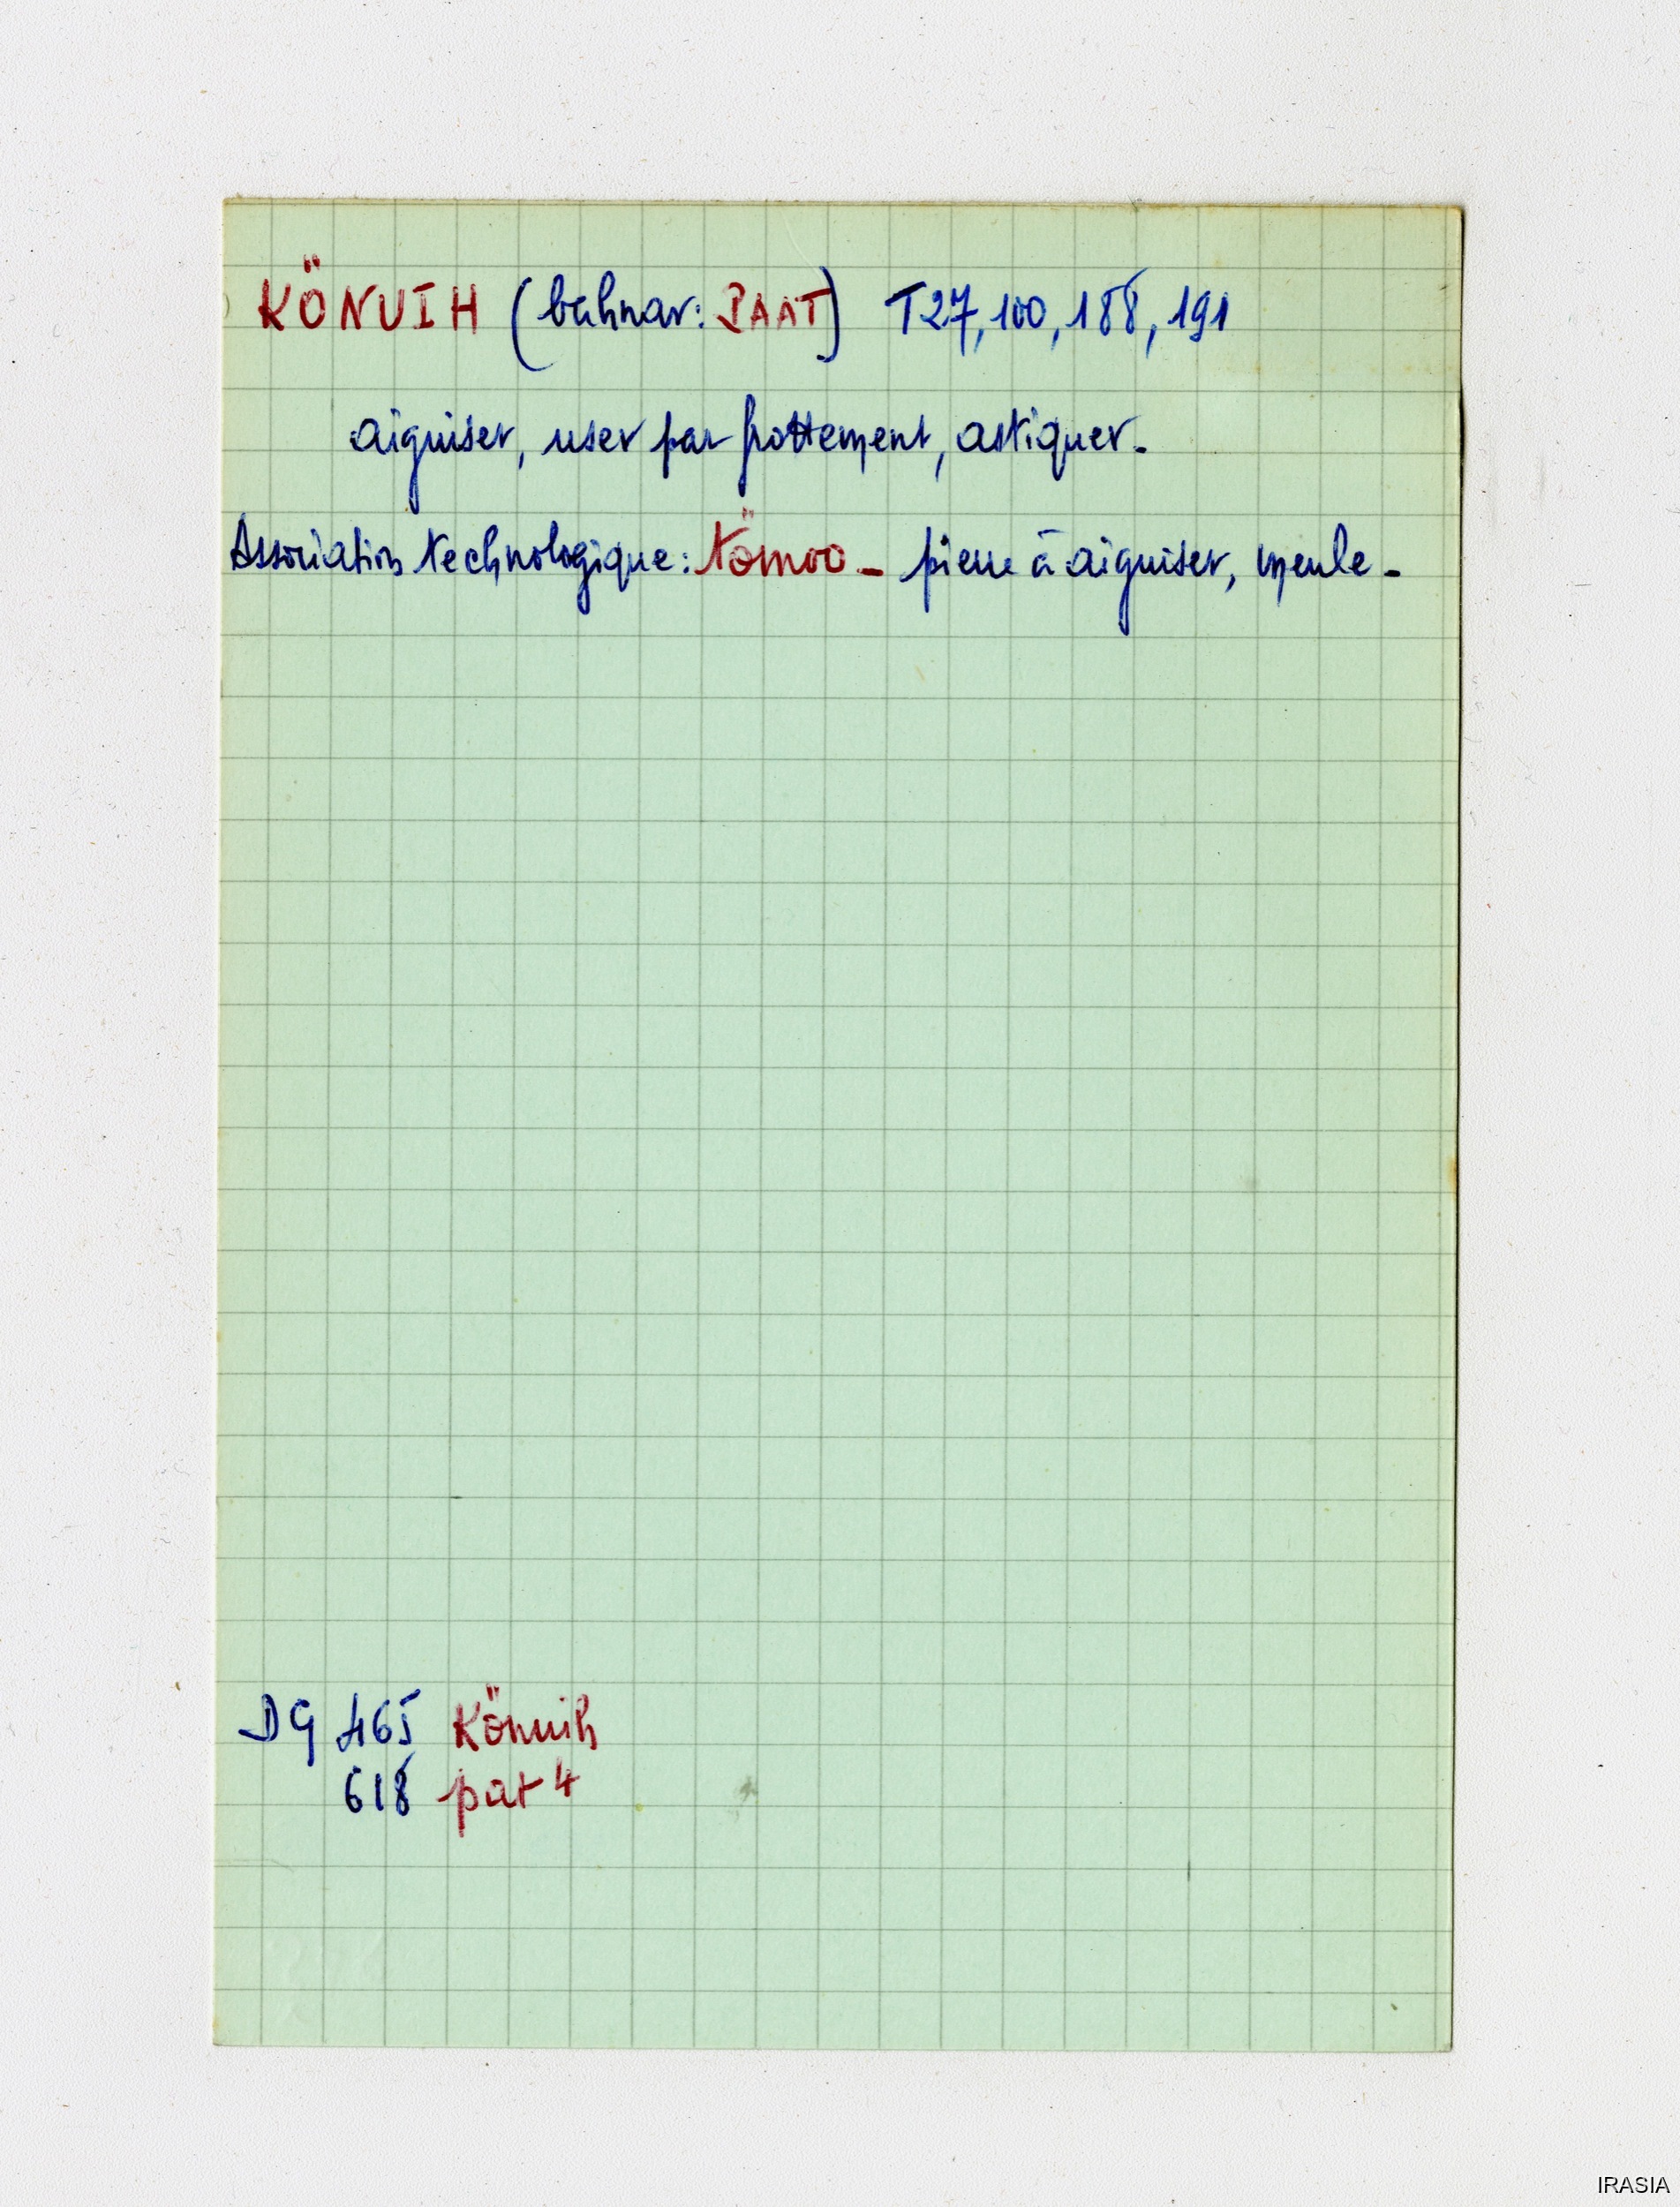 KÖNUIH (bahnar: PAAT) T27, 100, 188, 191
aiguiser, user par frottement, astiquer.
Association technologique: tömoo - pierre à aiguiser, meule -
DG 465 Könuih
618 pat 4
IRASIA